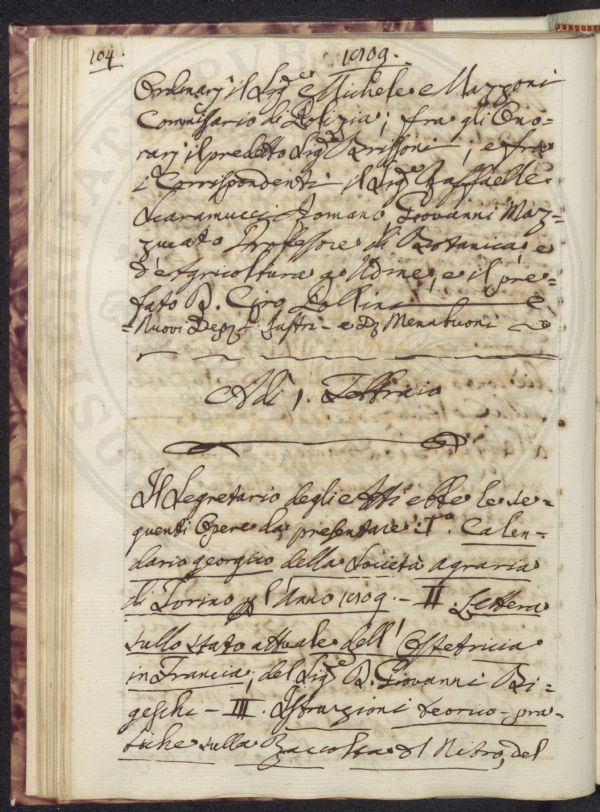 104.
1809.
Ordinarj il Sig.e Michele Mazzoni
Commissario di Polizia; fra gli Ono=
rarj il predetto Sig.e Brissoni; e fra
i Corrispondenti il Sig.e Raffaelle
Scaramucci Romano Giovanni Maz=
zucato Professore di Botanica e
d'Agricoltura a Udine, e il pre=
fato D. Ciro Pollini
Nuovi Sastri e D. Menabuoni
Adì 1. Febbraio
Il Segretario degli Atti ebbe le se=
guenti Opere da presentare: I.a Calen=
dario georgico della Società agraria
di Torino pl' Anno 1809. - II Lettera
sullo stato attuale dell' Ostetricia
in Francia, del Sig.e D. Giovanni Bi=
geschi - III. Istruzioni teorico-pra=
tiche sulla Raccolta del Nitro, del